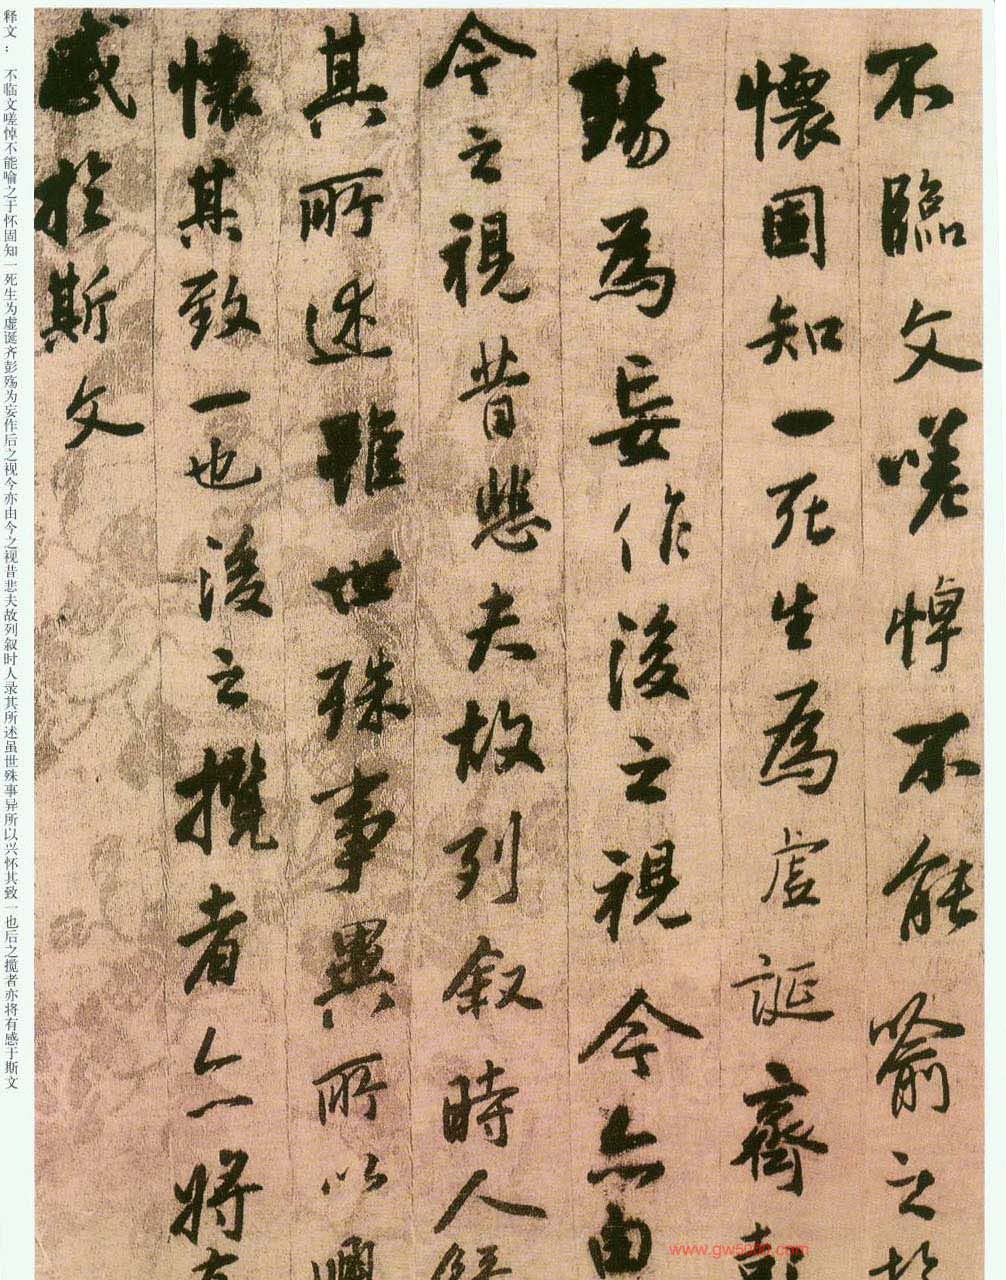 不臨文嗟悼不能喻之於
懷固知一死生為虛誕齊彭
殤為妄作後之視今亦由
今之視昔悲夫故列叙時人錄
其所述雖世殊事異所以興
懷其致一也後之攬者亦將有
感於斯文
释文： 不临文嗟悼不能喻之于怀固知一死生为虚诞齐彭殇为妄作后之视今亦由今之视昔悲夫故列叙时人录其所述虽世殊事异所以兴怀其致一也后之揽者亦将有感于斯文